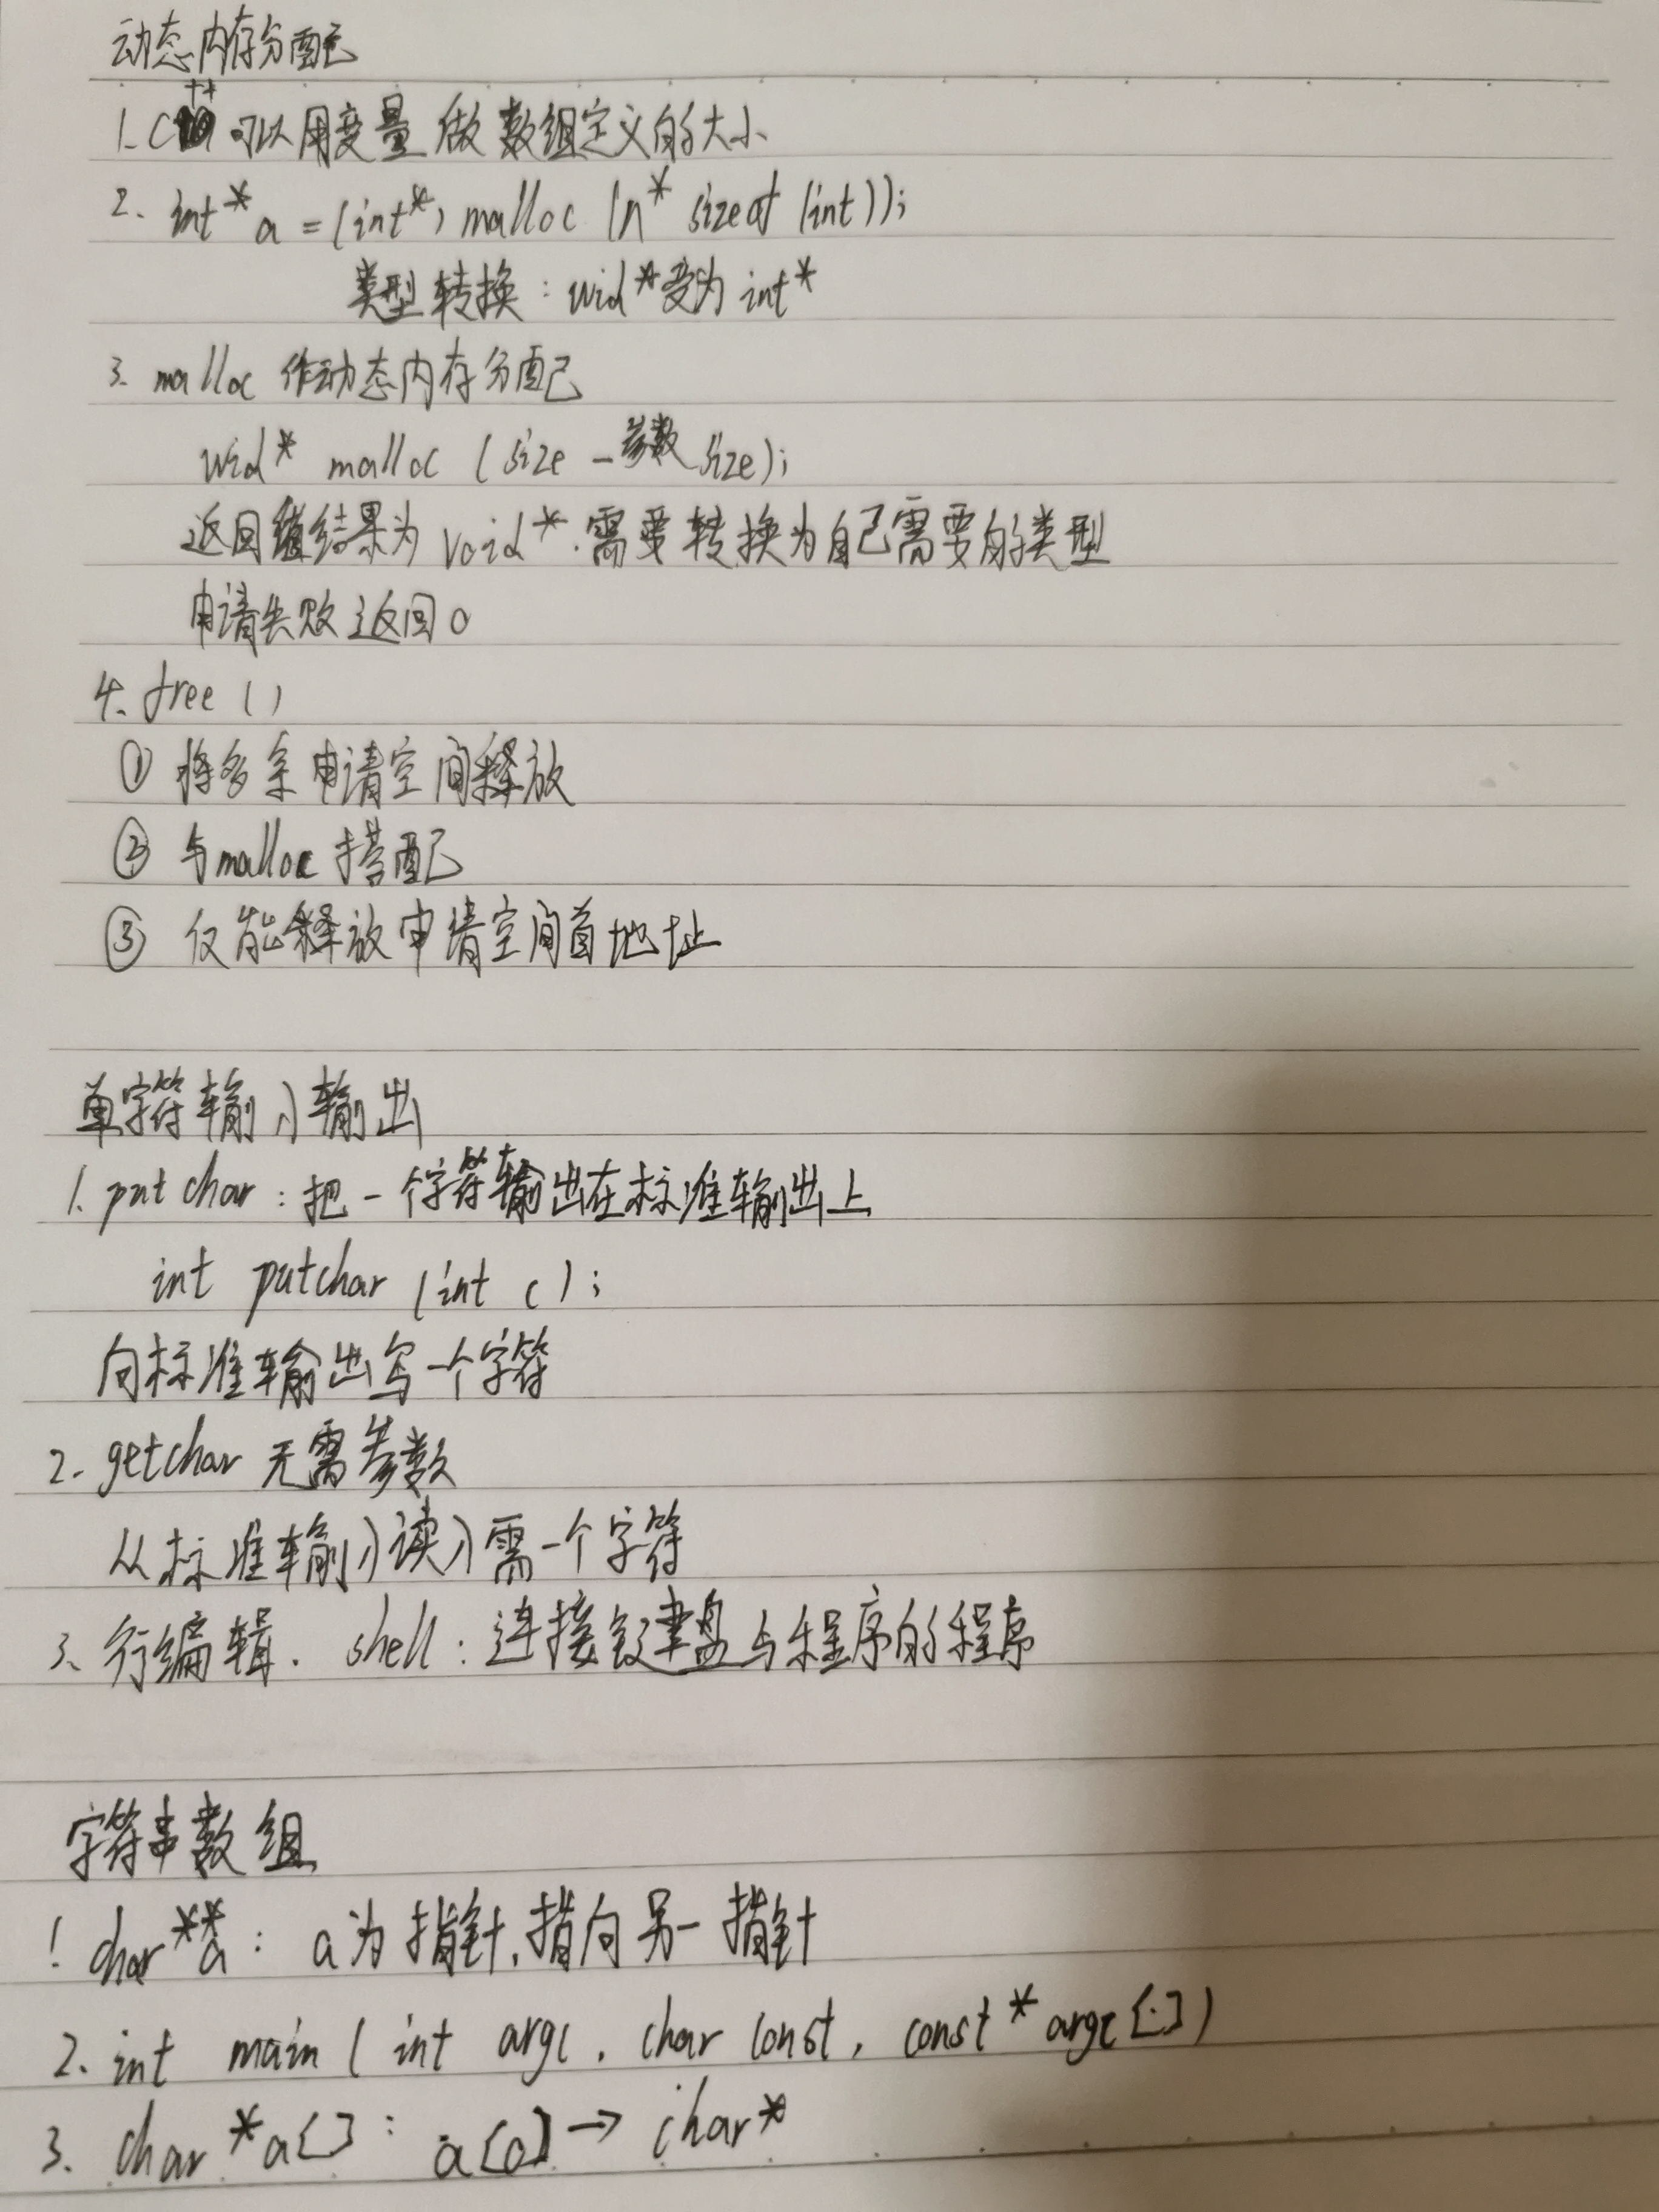 动态内存分配
1. C++ 可以用变量做数组定义的大小
2. int* a = (int*) malloc (n* sizeof (int));
类型转换: void*变为 int*
3. malloc 作动态内存分配
void* malloc (size-参数 size);
返回值结果为 void*.需要转换为自己需要的类型
申请失败返回0
4. free ()
① 将多余申请空间释放
② 与malloc 搭配
③ 仅能释放申请空间首地址
单字符输入输出
1. putchar: 把一个字符输出在标准输出上
int putchar (int c);
向标准输出写一个字符
2. getchar 无需参数
从标准输入读入需一个字符
3. 行编辑. shell: 连接键盘与程序的程序
字符串数组
1 char**a: a为指针,指向另一指针
2. int main ( int argc, char const, const * argc[])
3. char *a[]: a[0] → char*